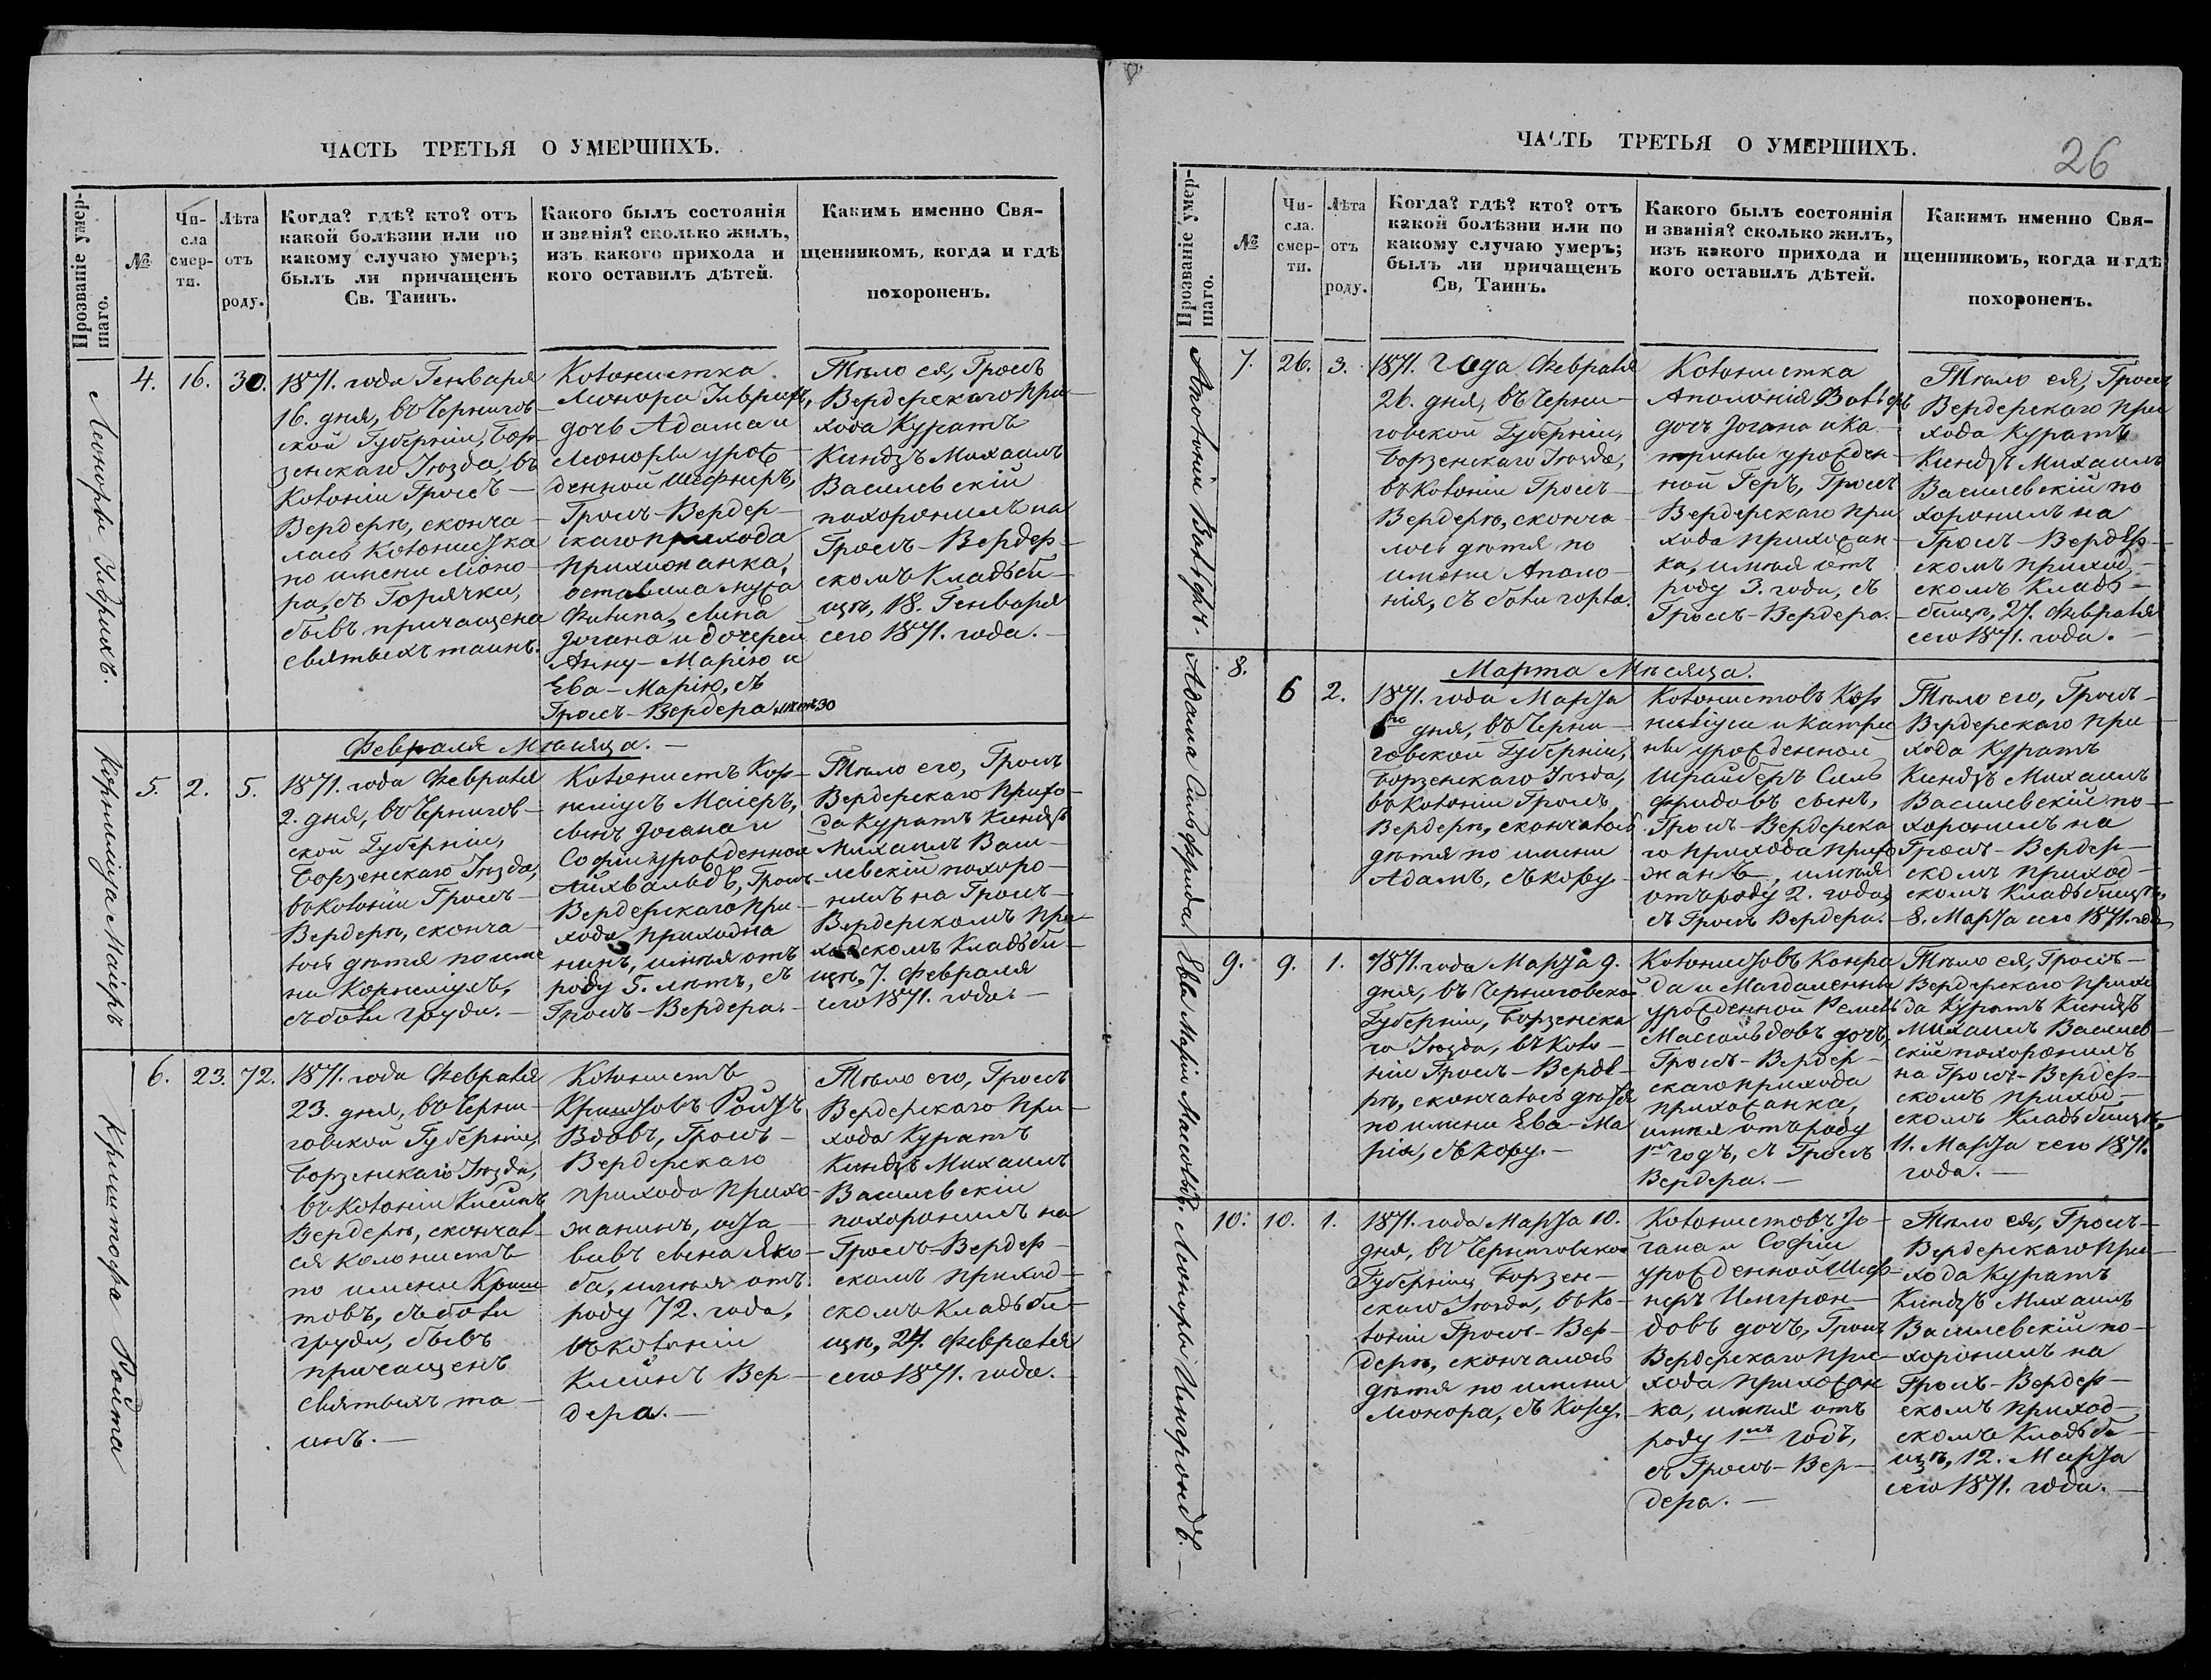 ЧАСТЬ ТРЕТЬЯ О УМЕРШИХЪ.
Прозваніе умер-
шаго.
№
Чи-
сла
смер-
ти.
Лѣта
отъ
роду.
Когда? гдѣ? кто? отъ
какой болѣзни или по
какому случаю умеръ;
былъ ли причащенъ
Св. Таинъ.
Какого былъ состоянія
и званія? сколько жилъ,
изъ какого прихода и
кого оставилъ дѣтей.
Какимъ именно Свя-
щенникомъ, когда и гдѣ
похороненъ.
Леоноры Ульрихъ.
4. 16. 30.
1871. года Генваря
16. дня, въ Чернигов-
ской Губерніи, Бор-
зенскаго Уѣзда, въ
Колоніи Гросъ-
Вердерѣ, сконча-
лась Колонистка
по имени Леоно-
ра, съ Горячки,
бывъ причащена
святыхъ таинъ.
Колонистка
Леонора Ульрихъ,
дочь Адама и
Леоноры урож-
денной Шефнеръ,
Гросъ-Вердер-
скаго прихода
прихожанка,
оставила мужа
Филипа, сына
Іогана и дочерей
Анну-Марію и
Ева-Марію, съ
Гросъ-Вердера
Тѣло ея, Гросъ
Вердерскаго при-
хода Куратъ
Ксендзъ Михаилъ
Василевскій
похоронилъ на
Гросъ-Вердер-
скомъ Кладби-
щѣ, 18. Генваря
сего 1871. года.-
Февраля Мѣсяца.-
Корнеліуса Маіеръ
5. 2. 5.
1871. года Февраля
2. дня, въ Чернигов-
ской Губерніи,
Борзенскаго Уѣзда,
въ Колоніи Гросъ-
Вердерѣ, сконча-
лось дѣтя по име
ни Корнеліусъ,
съ боли груди.-
Колонистъ Кор-
неліусъ Маіеръ,
сынъ Іогана и
Софіи урожденной
Айхвальдъ, Гросъ-
Вердерскаго при-
хода прихожа
нинъ, имѣя отъ
роду 5. лѣтъ, съ
Гросъ-Вердера.-
Тѣло его, Гросъ
Вердерскаго прихо-
да Куратъ Ксендзъ
Михаилъ Васи-
левскій похоро-
нилъ на Гросъ-
Вердерскомъ при-
ходскомъ Кладби-
щѣ, 7. Февраля
сего 1871. года.-
Криштофа Ройта
6. 23. 72.
1871. года Февраля
23. дня, въ Черни-
говской Губерніи,
Борзенскаго Уѣзда,
въ Колоніи Клейнъ
Вердерѣ, скончал-
ся колонистъ
по имени Криш
товъ, съ боли
груди, бывъ
причащенъ
святыхъ та-
инъ.-
Колонистъ
Криштовъ Ройтъ
Вдовъ, Гросъ-
Вердерскаго
прихода прихо-
жанинъ, оста-
вивъ сына Яко-
ба, имѣя отъ
роду 72. года,
въ колоніи
Клейнъ Вер-
дера.-
Тѣло его, Гросъ
Вердерскаго при-
хода Куратъ
Ксендзъ Михаилъ
Василевскій
похоронилъ на
Гросъ-Вердер-
скомъ приход-
скомъ Кладби-
щѣ, 27. Февраля
сего 1871. года.
ЧАСТЬ ТРЕТЬЯ О УМЕРШИХЪ.
26
Прозваніе умер-
шаго.
№
Чи-
сла.
смер-
ти.
Лѣта
отъ
роду.
Когда? гдѣ? кто? отъ
какой болѣзни или по
какому случаю умеръ;
былъ ли причащенъ
Св. Таинъ.
Какого былъ состоянія
и званія? сколько жилъ,
изъ какого прихода и
кого оставилъ дѣтей.
Какимъ именно Свя-
щенникомъ, когда и гдѣ
похороненъ.
7. 26. 3.
1871. Года Февраля
26. дня, въ Черни-
говской Губерніи,
Борзенскаго Уѣзда,
въ Колоніи Гросъ-
Вердерѣ, сконча
лось дѣтя по
имени Аполо-
нія, съ боли горла.
Колонистка
дочъ Іогана и Ка-
трины урожден-
ной Геръ, Гросъ
Вердерскаго при
хода прихожан-
ка, имѣя отъ
роду 3. года, съ
Гросъ-Вердера.-
Тѣло ея, Гросъ
Вердерскаго при
хода Куратъ
Ксендзъ Михаилъ
Василевскій по
хоронилъ на
Гросъ-Вердер-
скомъ приход-
скомъ Клад-
бищѣ, 27. Февраля
сего 1871. года.-
Марта Мѣсяца.
Адама Сильфрида.
8. 6 2.
1871. года Марта
6го дня, въ Черни-
говской Губерніи,
Борзенскаго Уѣзда,
въ Колоніи Гросъ
Вердерѣ, скончалось
дѣтя по имени
Адамъ, съ кору.
Колонистовъ Кор
неліуса и Катри
ны урожденной
Шрайберъ Силь
фридовъ сынъ,
Гросъ-Вердерска
го прихода прихо
жанъ, имѣя
отъ роду 2. года,
съ Гросъ Вердера.-
Тѣло его, Гросъ-
Вердерскаго при-
хода Куратъ
Ксендзъ Михаилъ
Василевскій по-
хоронилъ на
Гросъ-Вердер-
скомъ приход-
скомъ Кладбищѣ,
8. Марта сего 1871. года
Ева Маріи Масольдъ.
9. 9. 1.
1871. года Марта 9.
дня, въ Черниговской
Губерніи, Борзенска
го Уѣзда, въ Коло-
ніи Гросъ-Верде-
рѣ, скончалось дѣтя
по имени Ева-Ма
рія, съ кору.-
Колонистовъ Конра
да и Магдалены
урожденной
Масольдовъ дочъ,
Гросъ-Вердер-
скаго прихода
прихожанка,
имѣя отъ роду
1нъ годъ, съ Гросъ
Вердера.-
Тѣло ея, Гросъ-
Вердерскаго прихо
да Куратъ Ксендзъ
Михаилъ Василев-
скій похоронилъ
на Гросъ-Вердер-
скомъ приход-
скомъ Кладбищѣ,
11. Марта сего 1871.
года.-
Леоноры Ингрондъ.-
10. 10. 1.
1871. года Марта 10.
дня, въ Черниговской
Губерніи, Борзен-
скаго Уѣзда, въ Ко-
лоніи Гросъ-Вер-
дерѣ, скончалось
дѣтя по имени
Леонора, съ кору.
Колонистовъ Іо-
гана и Софіи
урожденной Шеф-
неръ Ингрон-
довъ дочъ, Гросъ
Вердерскаго при-
хода прихожан
ка, имѣя отъ
роду 1нъ годъ,
съ Гросъ-Вер-
дера.-
Тѣло ея, Гросъ-
Вердерскаго при-
хода Куратъ
Ксендзъ Михаилъ
Василевскій по-
хоронилъ на
Гросъ-Вердер-
скомъ приход-
скомъ Кладби-
щѣ, 12. Марта
сего 1871. года.-